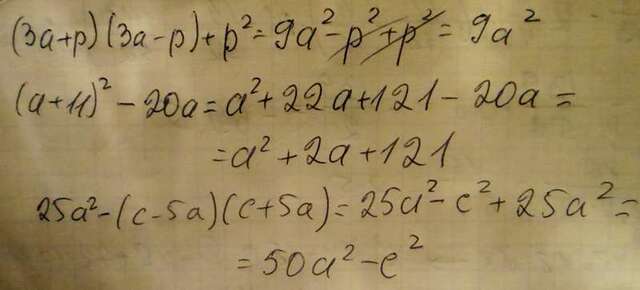 (3a+p)(3a-p)+p²=9a²-p²+p²=9a²
(a+11)²-20a=a²+22a+121-20a=
=a²+2a+121
25a²-(c-5a)(c+5a)=25a²-c²+25a²=
=50a²-c²